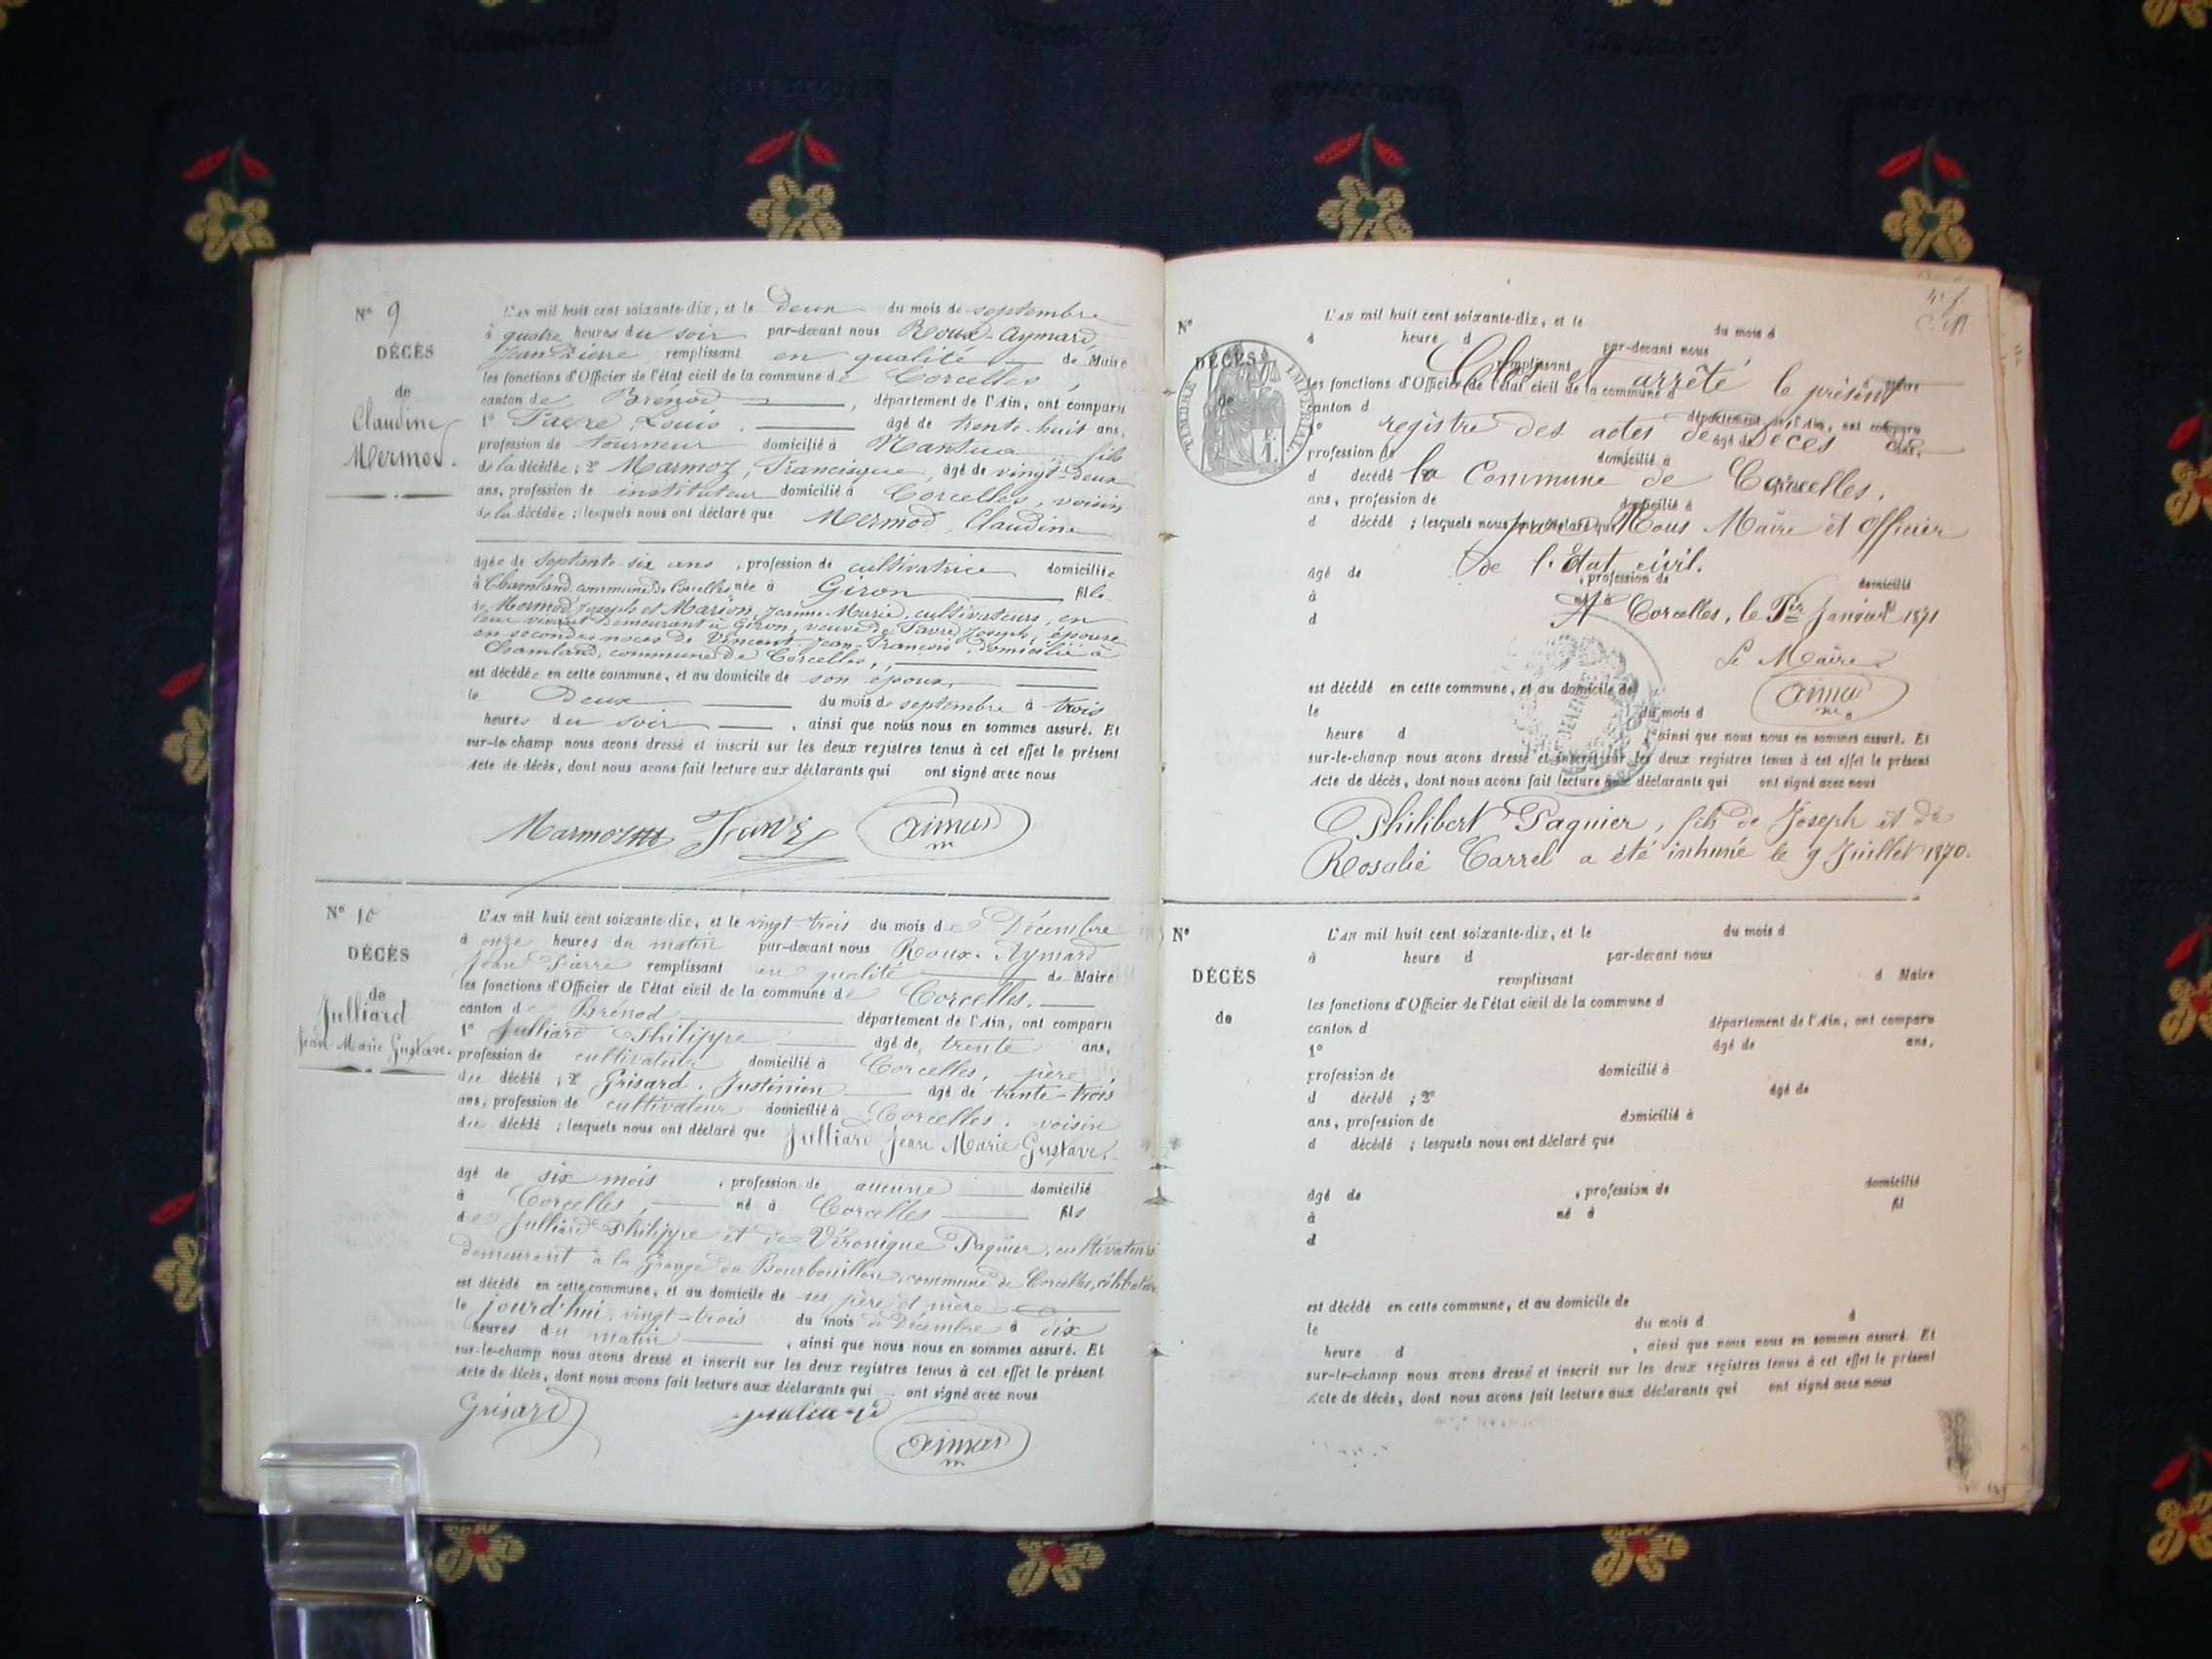 N° 9
DÉCÈS
de
Claudine
Mermod.
L'AN mil huit cent soixante-dix, et le Deux du mois de septembre
à quatre heures du soir par-devant nous Roux-Aymard
Jean Pierre remplissant en qualité de Maire
les fonctions d'Officier de l'état civil de la commune de Corcelles,
canton de Brénod, département de l'Ain, ont comparu
1° Favre Louis. âgé de trente-huit ans,
profession de tourneur domicilié à Nantua fils
de la décédée ; 2° Marmoz, Francisque, âgé de vingt-deux
ans, profession de instituteur domicilié à Corcelles, voisin
de la décédée ; lesquels nous ont déclaré que Mermod Claudine
âgée de septante-six ans, profession de cultivatrice domiciliée
à Chamland commune de Corcelles née à Giron fille
de Mermod Joseph et Marion, Jeanne-Marie, cultivateurs, en
leur vivant demeurant à Giron, veuve de Favre Joseph, épouse
en secondes noces de Vincent Jean-François, domicilié à
Chamland, commune de Corcelles,
est décédée en cette commune, et au domicile de son époux,
le Deux du mois de septembre à trois
heures du soir, ainsi que nous nous en sommes assuré. Et
sur-le-champ nous avons dressé et inscrit sur les deux registres tenus à cet effet le présent
Acte de décès, dont nous avons fait lecture aux déclarants qui ont signé avec nous
Marmoz Favre Aimard
N° 10
DÉCÈS
de
Julliard
Jean Marie Gustave.
L'AN mil huit cent soixante-dix, et le vingt-trois du mois de Décembre
à onze heures du matin par-devant nous Roux-Aymard
Jean Pierre remplissant en qualité de Maire
les fonctions d'Officier de l'état civil de la commune de Corcelles.
canton de Brénod département de l'Ain, ont comparu
1° Julliard Philippe âgé de trente ans,
profession de cultivateur domicilié à Corcelles, père
du décédé ; 2° Grisard, Justinien âgé de trente-trois
ans, profession de cultivateur domicilié à Corcelles, voisin
du décédé ; lesquels nous ont déclaré que Julliard Jean Marie Gustave,
âgé de six mois, profession de aucune domicilié
à Corcelles, né à Corcelles fils
de Julliard Philippe et de Véronique Paquier, cultivateurs
demeurant à la Grange du Bourbouillon, commune de Corcelles, célibataire
est décédé en cette commune, et au domicile de ses père et mère
le jourd'hui vingt-trois du mois de Décembre à dix
heures du matin, ainsi que nous nous en sommes assuré. Et
sur-le-champ nous avons dressé et inscrit sur les deux registres tenus à cet effet le présent
Acte de décès, dont nous avons fait lecture aux déclarants qui ont signé avec nous
Grisard
Aimard
N°
DÉCÈS
de
TIMBRE IMPERIAL
L'AN mil huit cent soixante-dix, et le du mois d
à heure d par-devant nous
remplissant d Maire
les fonctions d'Officier de l'état civil de la commune d
canton d département de l'Ain, ont comparu
1° âgé de ans,
profession de domicilié à
d décédé
ans, profession de domicilié à
d décédé ; lesquels nous ont déclaré que
Clos et arrêté le présent
registre des actes de Décès de
la Commune de Corcelles,
par Nous Maire et Officier
de l'Etat civil.
A Corcelles, le 1er Janvier 1871
Le Maire
Aimard
âgé de , profession de domicilié
à né à fil
d
est décédé en cette commune, et au domicile de
le du mois d
heure d , ainsi que nous nous en sommes assuré. Et
sur-le-champ nous avons dressé et inscrit sur les deux registres tenus à cet effet le présent
Acte de décès, dont nous avons fait lecture aux déclarants qui ont signé avec nous
Philibert Paquier, fils de Joseph et de
Rosalie Carrel a été inhumé le 9 Juillet 1870.
N°
DÉCÈS
de
L'AN mil huit cent soixante-dix, et le du mois d
à heure d par-devant nous
remplissant d Maire
les fonctions d'Officier de l'état civil de la commune d
canton d département de l'Ain, ont comparu
1° âgé de ans,
profession de domicilié à
d décédé ; 2° âgé de
ans, profession de domicilié à
d décédé ; lesquels nous ont déclaré que
âgé de , profession de domicilié
à né à fil
d
est décédé en cette commune, et au domicile de
le du mois d à
heure d , ainsi que nous nous en sommes assuré. Et
sur-le-champ nous avons dressé et inscrit sur les deux registres tenus à cet effet le présent
Acte de décès, dont nous avons fait lecture aux déclarants qui ont signé avec nous